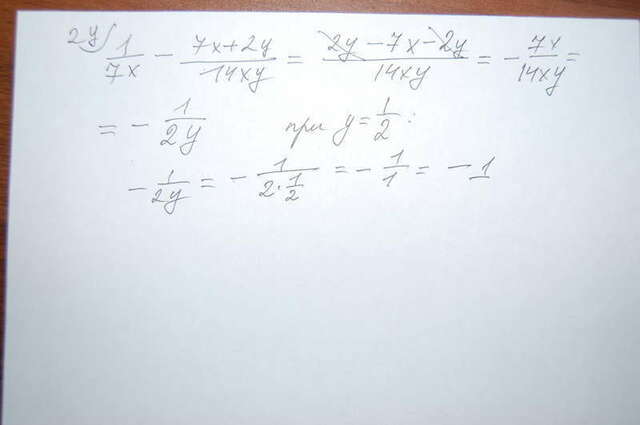 2y/ 1/7x - (7x+2y)/14xy = (2y-7x-2y)/14xy = - 7x/14xy =
= - 1/2y при y = 1/2 :
- 1/2y = - 1/(2·1/2) = - 1/1 = - 1